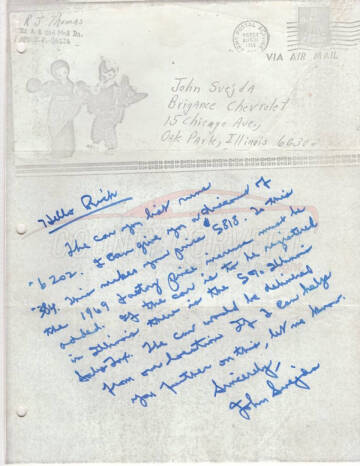 R J Thomas
VIA AIR MAIL
John Svejda
Brigance Chevrolet
15 Chicago Ave,
Oak Park, Illinois 66302
Hello Rich
The car you list runs
6202. I can give you a discount of
384. This makes your price $5818. To this
the 1969 factory price increase must be
added. If the car is to be registered
in Illinois there is the 5% Illinois
Sales Tax. The car would be delivered
from our location. If I can help
you further on this, let me know.
Sincerely,
John Svejda